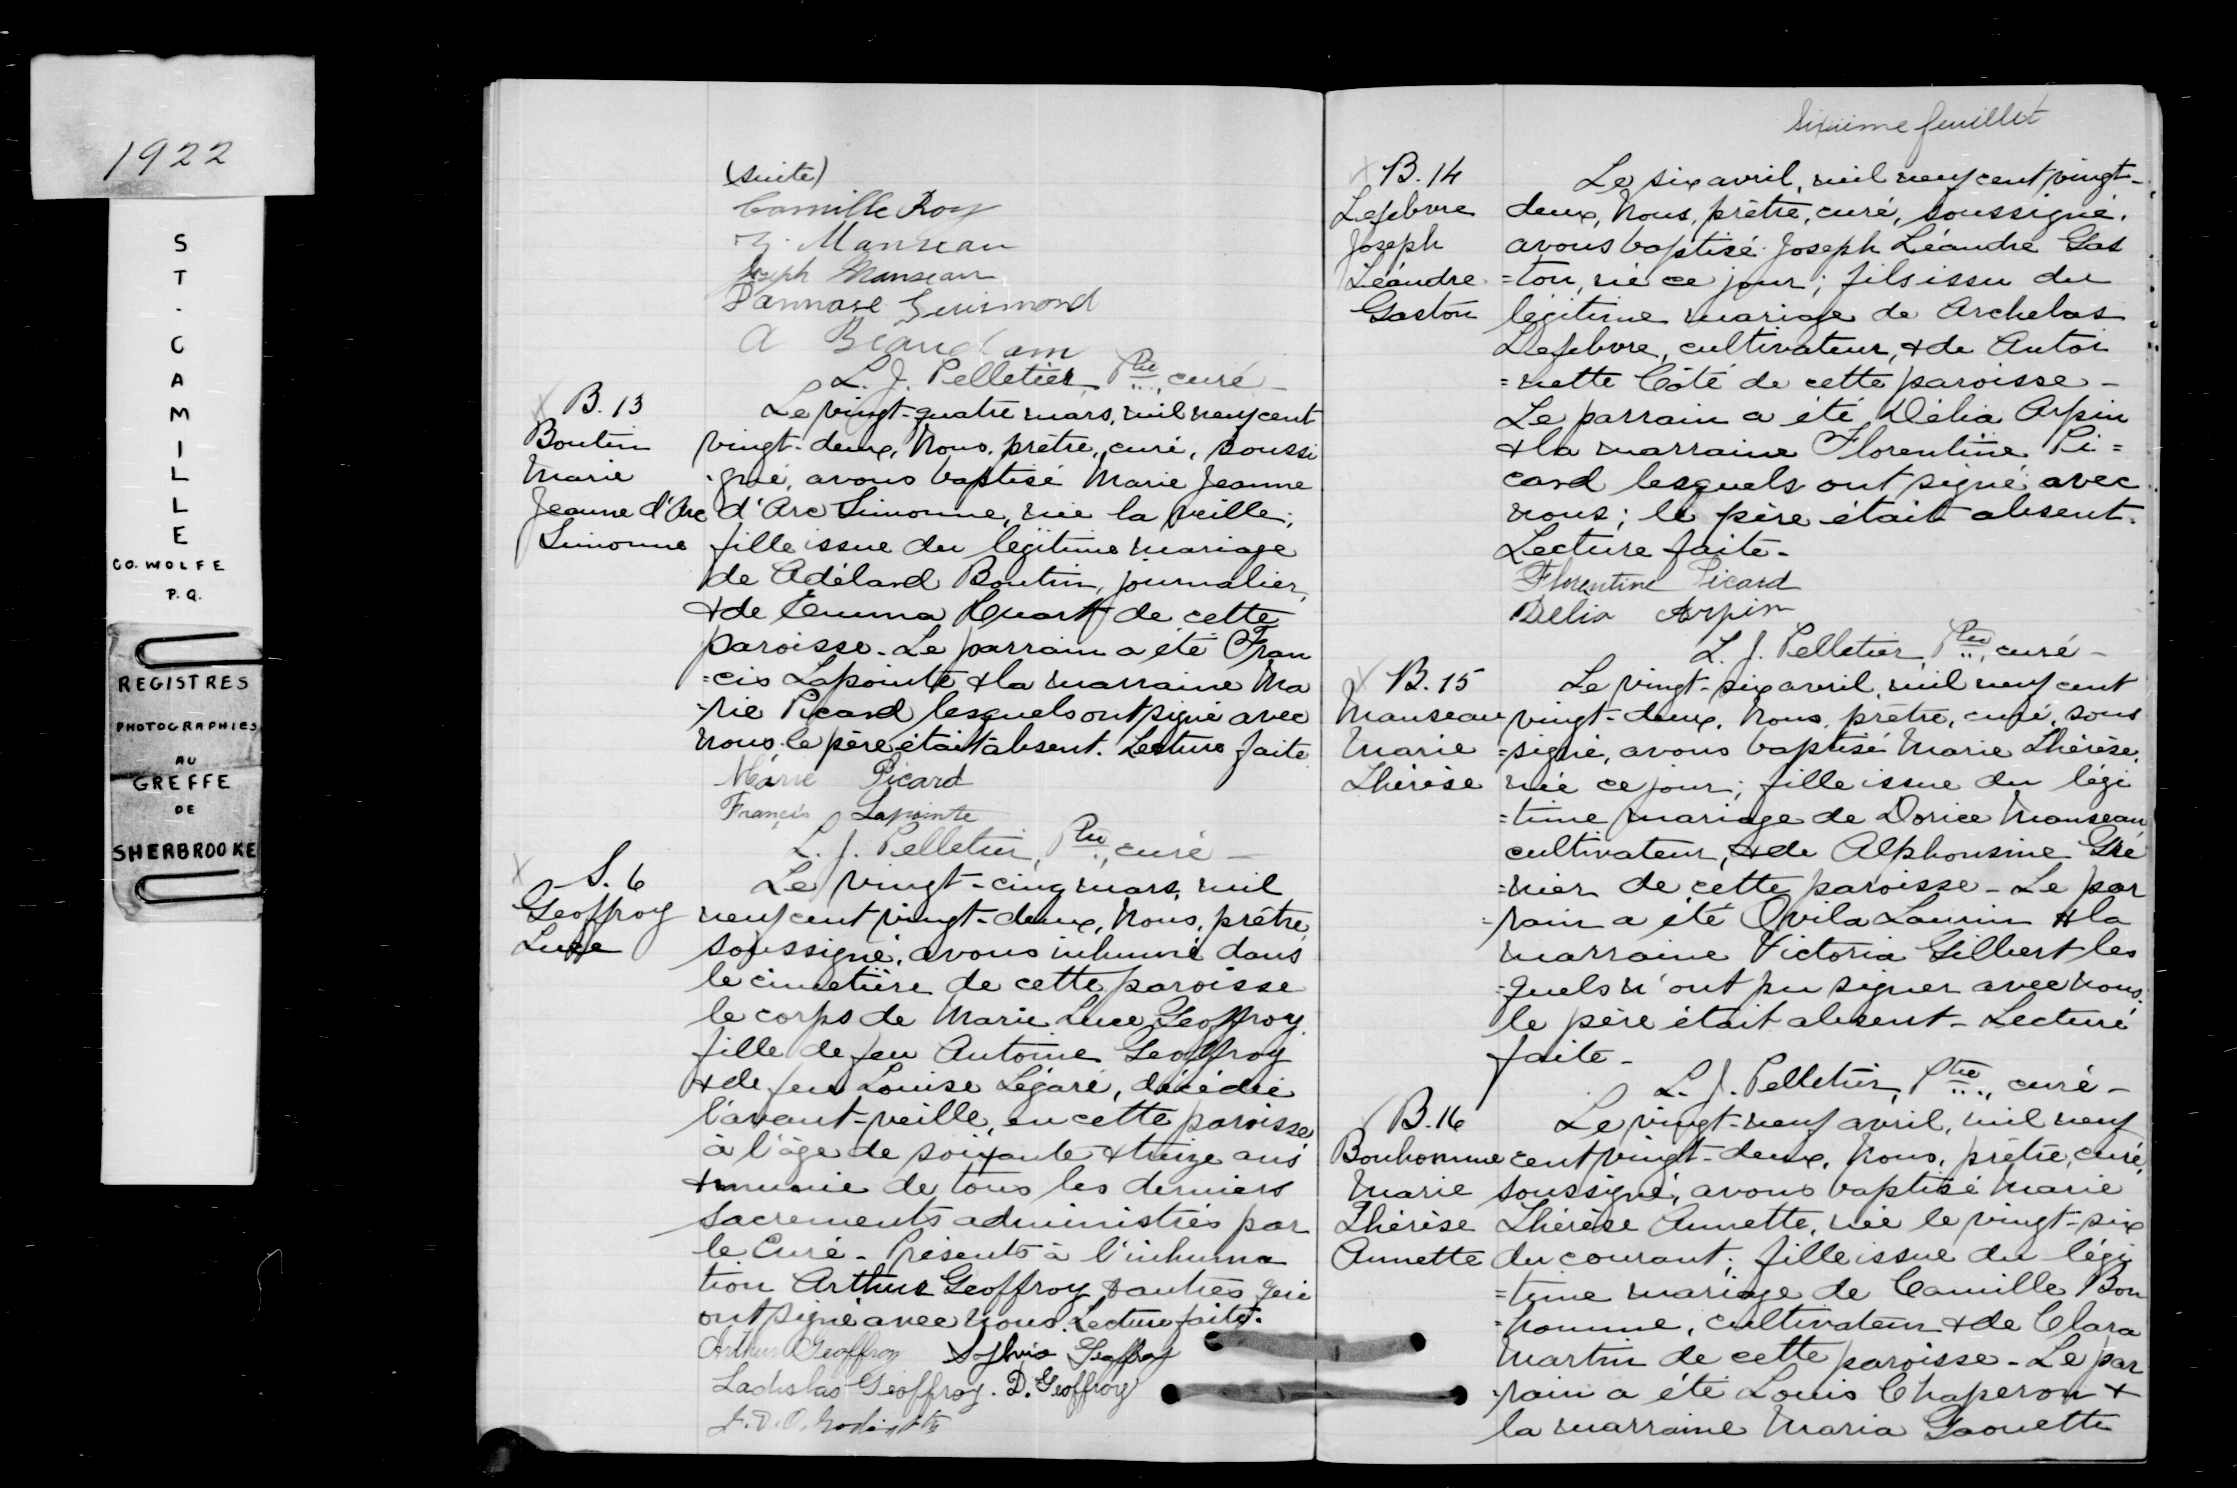 1922
ST. CAMILLE
CO. WOLFE
P.Q.
REGISTRES
PHOTOGRAPHIES
AU
GREFFE
DE
SHERBROOKE
(suite)
Camille Roy
Manseau
Joseph Manseau
A
L. J. Pelletier, Ptre, curé-
B. 13
Boutin
Marie
Jeanne d'Arc
Simonne
Le vingt-quatre mars, mil neuf cent
vingt-deux, Nous, prêtre, curé, soussi
-gné, avons baptisé Marie Jeanne
d'Arc Simonne, née la veille;
fille issue du légitime mariage
de Adélard Boutin, journalier,
& de Emma de cette
paroisse. Le parrain a été Fran
=cis Lapointe & la marraine Ma
-rie Picard lesquels ont signé avec
nous. le père était absent. Lecture faite
Marie Picard
Francis Lapointe
L. J. Pelletier, Ptre, curé-
S. 6
Geoffroy
Luce
Le vingt-cinq mars, mil
neuf cent vingt-deux, Nous, prêtre,
soussigné, avons inhumé dans
le cimetière de cette paroisse
le corps de Marie Luce Geoffroy
fille de feu Antoine Geoffroy
& de feu Louise Légaré, décédée
l'avant-veille, en cette paroisse
à l'âge de soixante & treize ans
& munie de tous les derniers
sacrements administrés par
le Curé- Présents à l'inhuma
tion Arthur Geoffroy & autres qui
ont signé avec nous. Lecture faite.
Arthur Geoffroy Sylvio Geoffroy
Ladislas Geoffroy. D. Geoffroy
Sixième feuillet
B. 14
Lefebvre
Joseph
Léandre
Gaston
Le six avril, mil neuf cent vingt-
deux, Nous, prêtre, curé, soussigné,
avons baptisé Joseph Léandre Gas
=ton, né ce jour; fils issu du
légitime mariage de Archelas
Lefebvre, cultivateur, & de Antoi
=nette Côté de cette paroisse-
Le parrain a été Délia Arpin
& la marraine Florentine Pi=
card lesquels ont signé avec
nous; le père était absent.
Lecture faite-
Florentine Picard
Delia Arpin
L. J. Pelletier, Ptre, curé-
B. 15
Manseau
Marie
Thérèse
Le vingt-six avril, mil neuf cent
vingt-deux, Nous, prêtre, curé, sous
=signé, avons baptisé Marie Thérèse,
née ce jour; fille issue du légi
=time mariage de Dorice Manseau
cultivateur, & de Alphonsine Gre
=nier de cette paroisse- Le par
=rain a été Ovila Laurin & la
marraine Victoria Gilbert les
-quels n'ont pu signer avec nous.
le père était absent- Lecture
faite-
L. J. Pelletier, Ptre, curé-
B. 16
Bonhomme
Marie
Thérèse
Annette
Le vingt-neuf avril, mil neuf
cent vingt-deux, Nous, prêtre, curé,
soussigné, avons baptisé Marie
Thérèse Annette, née le vingt-six
du courant; fille issue du légi
=time mariage de Camille Bon
-homme, cultivateur & de Clara
Martin de cette paroisse- Le par
-rain a été Louis Chaperon &
la marraine Maria Gaouette